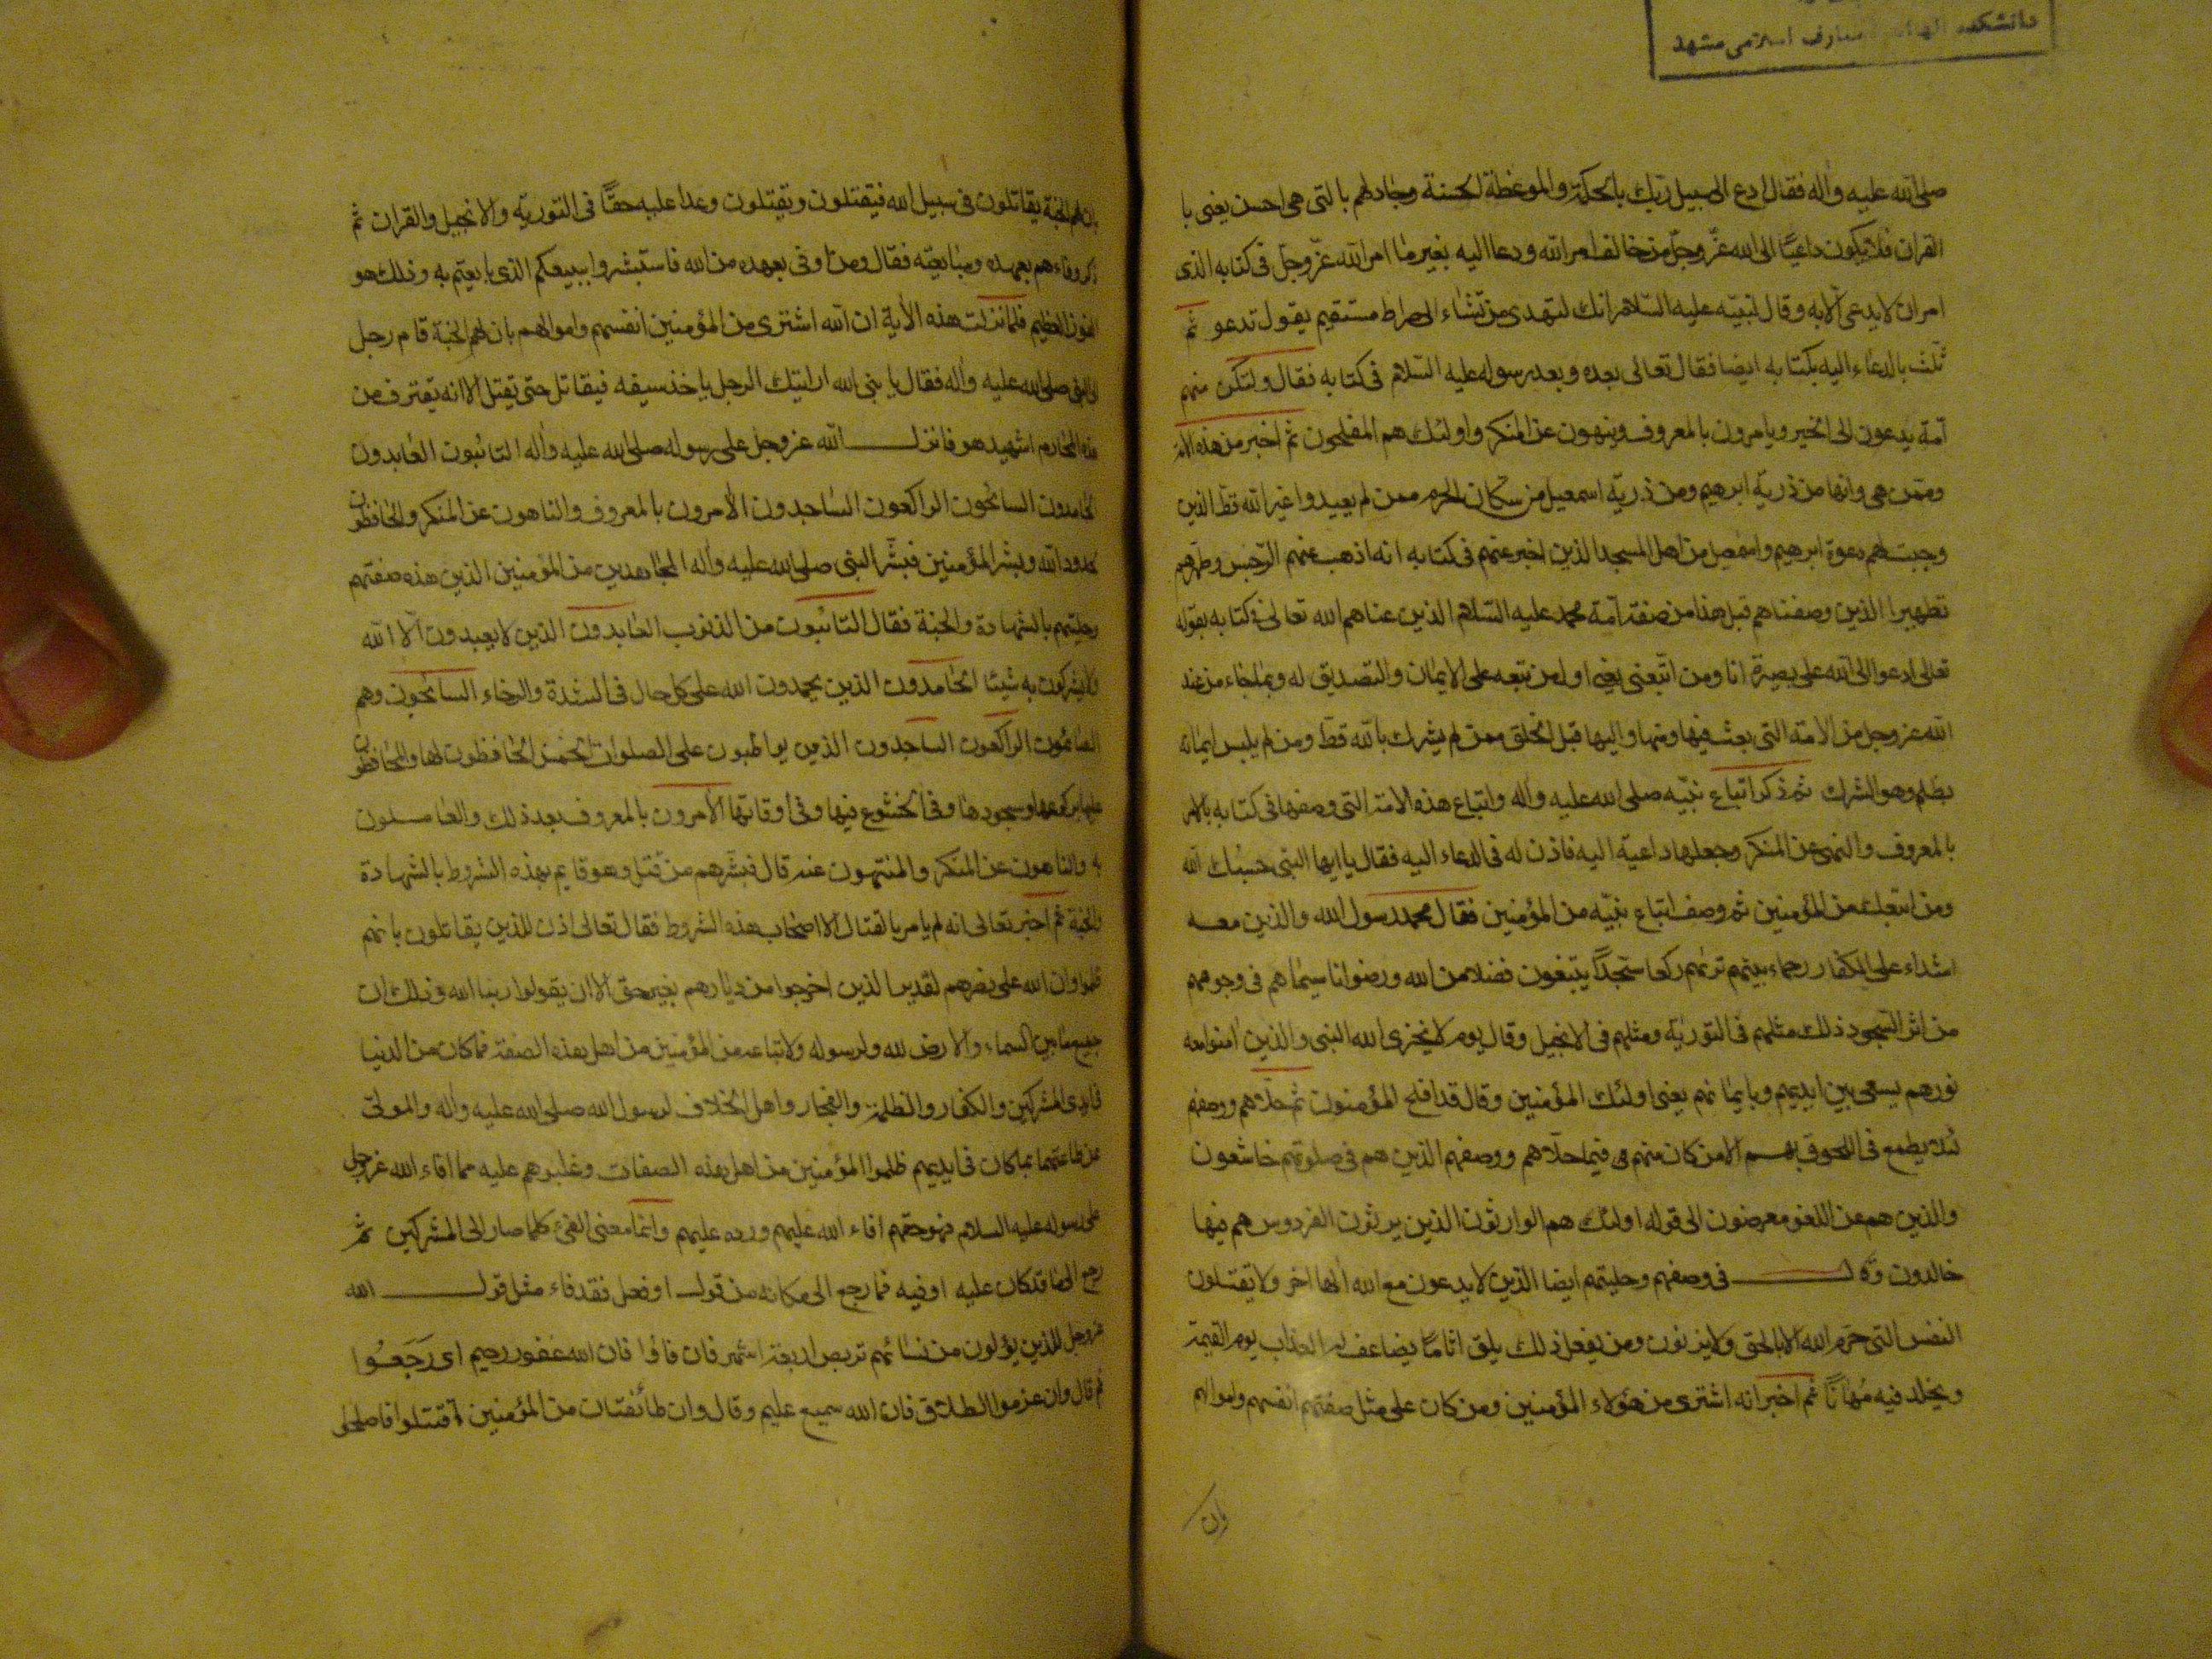 دانشكده الهيات معارف اسلامى مشهد
صلى الله عليه واله فقال ادع الى سبيل ربك بالحكمة والموعظة الحسنة وجادلهم بالتى هى احسن يعنى با
القران فلا يكون داعيا الى الله عز وجل من خالف امر الله ودعا اليه بغير ما امر الله عز وجل فى كتابه الذى
امر ان لا يدعى الا به وقال لنبيه عليه السلام انك لتهدى من تشاء الى صراط مستقيم يقول تدعو ثم
ثلث بالدعاء اليه بكتابه ايضا فقال تعالى بعده وبعد رسوله عليه السلام فى كتابه فقال ولتكن منهم
امة يدعون الى الخير ويامرون بالمعروف وينهون عن المنكر واولئك هم المفلحون ثم اخبر من هذه الامة
وممن هى وانها من ذرية ابرهيم ومن ذرية اسمعيل من سكان الحرم ممن لم يعبدوا غير الله قط الذين
وجبت لهم دعوة ابرهيم واسمعيل من اهل المسجد الذين اخبر عنهم فى كتابه انه اذهب عنهم الرجس وطهرهم
تطهيرا الذين وصفناهم قبل هذا من صفة امة محمد عليه السلام الذين عناهم الله تعالى فى كتابه بقوله
تعالى ادعوا الى الله على بصيرة انا ومن اتبعنى يعنى اول من تبعه على الايمان والتصديق له وبما جاء من عند
الله عز وجل من الامة التى بعث فيها ومنها واليها قبل الخلق ممن لم يشرك بالله قط ومن لم يلبس ايمانه
بظلم وهو الشرك ثم ذكر اتباع نبيه صلى الله عليه واله واتباع هذه الامة التى وصفها فى كتابه بالامر
بالمعروف والنهى عن المنكر وجعلها داعية اليه فاذن له فى الدعاء اليه فقال يا ايها النبى حسبك الله
ومن اتبعك من المؤمنين ثم وصف اتباع نبيه من المؤمنين فقال محمد رسول الله والذين معه
اشداء على الكفار رحماء بينهم تريهم ركعا سجدا يبتغون فضلا من الله ورضوانا سيماهم فى وجوههم
من اثر السجود ذلك مثلهم فى التورية ومثلهم فى الانجيل وقال يوم لا يخزى الله النبى والذين امنوا معه
نورهم يسعى بين ايديهم وبايمانهم يعنى اولئك المؤمنين وقال قد افلح المؤمنون ثم حلاهم ووصفهم
لئلا يطمع فى اللحوق بهم الا من كان منهم فيما حلاهم ووصفهم الذين هم فى صلوتهم خاشعون
والذين هم عن اللغو معرضون الى قوله اولئك هم الوارثون الذين يرثون الفردوس هم فيها
خالدون وقال فى وصفهم وحليتهم ايضا الذين لا يدعون مع الله الها اخر ولا يقتلون
النفس التى حرم الله الا بالحق ولا يزنون ومن يفعل ذلك يلق اثاما يضاعف له العذاب يوم القيمة
ويخلد فيه مهانا ثم اخبر انه اشترى من هؤلاء المؤمنين ومن كان على مثل صفتهم انفسهم واموالهم
وان
بان لهم الجنة يقاتلون فى سبيل الله فيقتلون ويقتلون وعدا عليه حقا فى التورية والانجيل والقران ثم
ذكر وفاءهم بعهده ومبايعته فقال ومن اوفى بعهده من الله فاستبشروا ببيعكم الذى بايعتم به وذلك هو
الفوز العظيم فلما نزلت هذه الاية ان الله اشترى من المؤمنين انفسهم واموالهم بان لهم الجنة قام رجل
الى النبى صلى الله عليه واله فقال يا نبى الله ارايتك الرجل ياخذ سيفه فيقاتل حتى يقتل الا انه يقترف من
هذه المحارم اشهيد هو فانزل الله عز وجل على رسوله صلى الله عليه واله التائبون العابدون
الحامدون السائحون الراكعون الساجدون الامرون بالمعروف والناهون عن المنكر والحافظون
لحدود الله وبشر المؤمنين فبشر النبى صلى الله عليه واله المجاهدين من المؤمنين الذين هذه صفتهم
وحليتهم بالشهادة والجنة فقال التائبون من الذنوب العابدون الذين لا يعبدون الا الله
ولا يشركون به شيئا الحامدون الذين يحمدون الله على كل حال فى الشدة والرخاء السائحون وهم
الصائمون الراكعون الساجدون الذين يواظبون على الصلوات الخمس الحافظون لها والمحافظون
عليها بركوعها وسجودها وفى الخشوع فيها وفى اوقاتها الامرون بالمعروف بعد ذلك والعاملون
به والناهون عن المنكر والمنتهون عنه قال فبشرهم من قتل وهو قايم بهذه الشروط بالشهادة
والجنة ثم اخبر تعالى انه لم يامر بالقتال الا اصحاب هذه الشروط فقال تعالى اذن للذين يقاتلون بانهم
ظلموا وان الله على نصرهم لقدير الذين اخرجوا من ديارهم بغير حق الا ان يقولوا ربنا الله وذلك ان
جميع ما بين السماء والارض لله ولرسوله ولاتباعه من المؤمنين من اهل هذه الصفة فما كان من الدنيا
فى ايدى المشركين والكفار والظلمة والفجار واهل الخلاف لرسول الله صلى الله عليه واله والمولى
عن طاعتهما بما كان فى ايديهم ظلموا المؤمنين من اهل هذه الصفات وغلبوهم عليه مما افاء الله عز وجل
على رسوله عليه السلام فهو حقهم افاء الله عليهم ورده عليهم وانما معنى الفئ كلما صار الى المشركين ثم
رجع الى ما قد كان عليه او فيه فما رجع الى مكانه من قول او فعل فقد فاء مثل قول الله
عز وجل للذين يؤلون من نسائهم تربص اربعة اشهر فان فاؤا فان الله غفور رحيم اى رجعوا
ثم قال وان عزموا الطلاق فان الله سميع عليم وقال وان طائفتان من المؤمنين اقتتلوا فاصلحوا